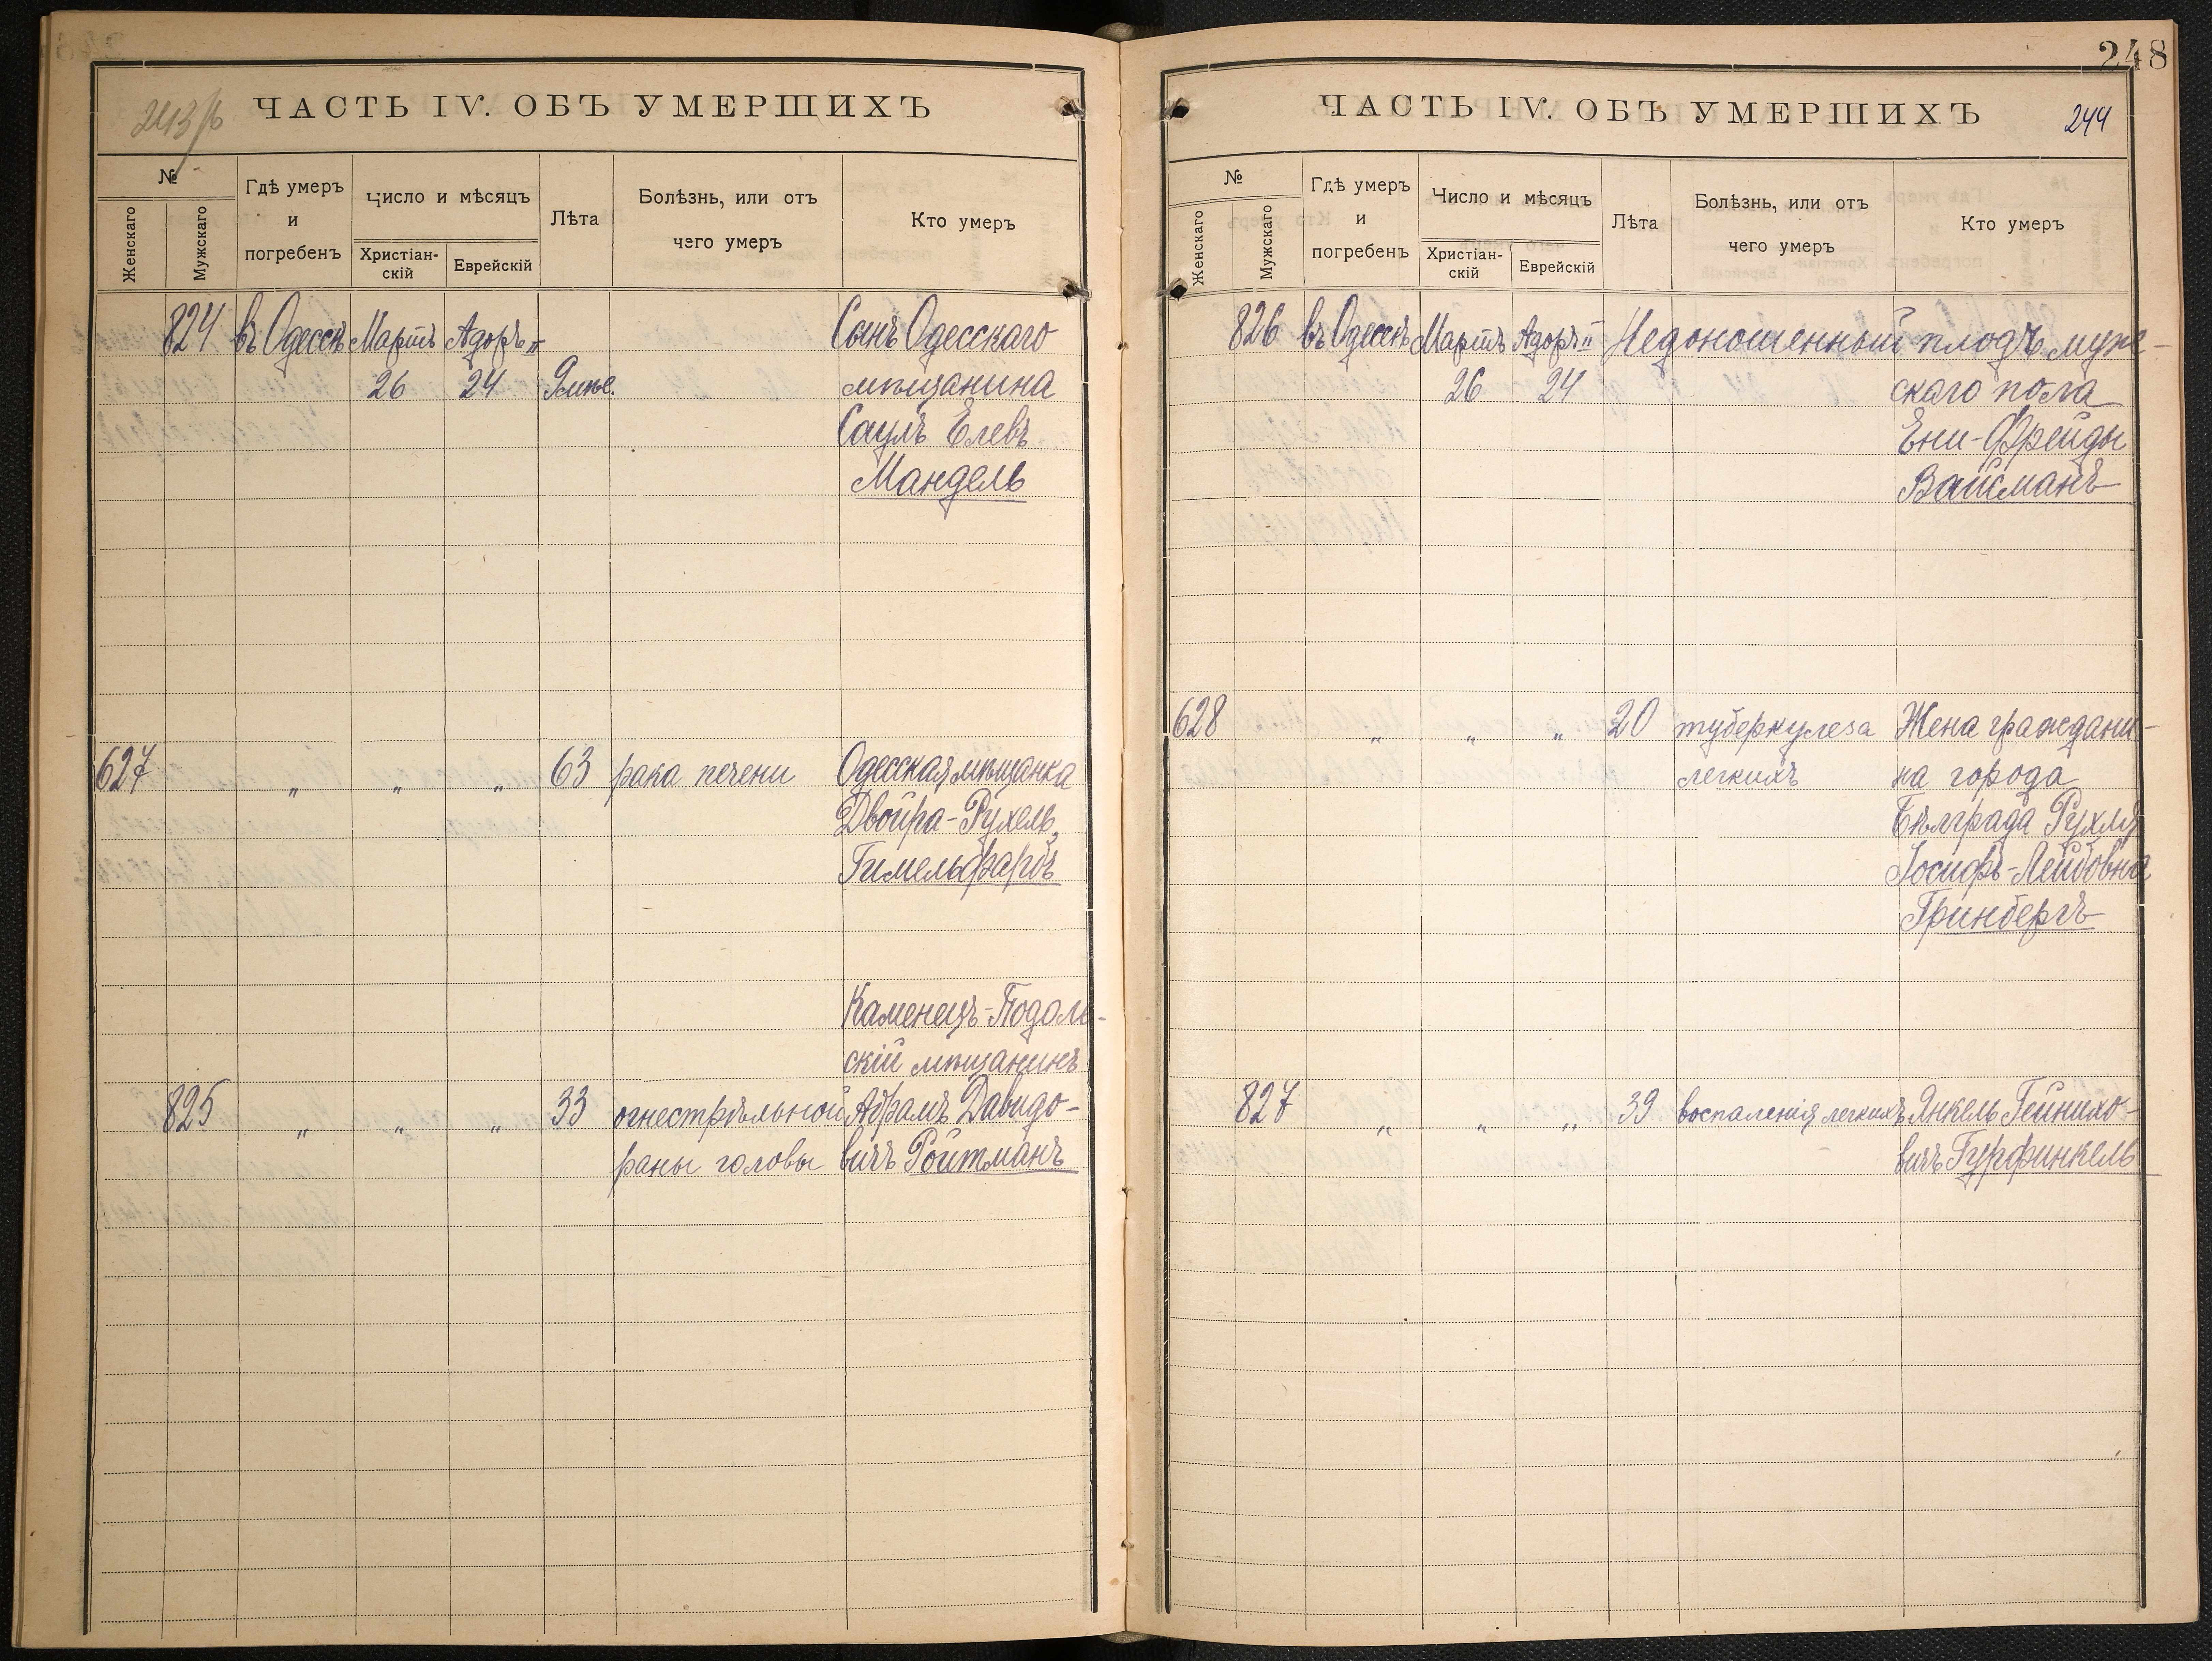 243 об
ЧАСТЬ IV. ОБЪ УМЕРШИХЪ
№
Женскаго
Мужскаго
Гдѣ умеръ
и
погребенъ
Число и мѣсяцъ
Христіан-
скій
Еврейскій
Лѣта
Болѣзнь, или отъ
чего умеръ
Кто умеръ
824 въ Одессѣ Мартъ Адоръ II Сынъ Одесскаго
26 24 9 мѣс. мѣщанина
Саулъ Елевъ
Мандель
627 " " " 63 рака печени Одесская мѣщанка
Двойра-Рухель
Гимельфарбъ
Каменецъ-Подоль-
скій мѣщанинъ
825 " " " 33 огнестрѣльной Абрамъ Давидо-
раны головы вичъ Ройтманъ
248
ЧАСТЬ IV. ОБЪ УМЕРШИХЪ
244
№
Женскаго
Мужскаго
Гдѣ умеръ
и
погребенъ
Число и мѣсяцъ
Христіан-
скій
Еврейскій
Лѣта
Болѣзнь, или отъ
чего умеръ
Кто умеръ
826 въ Одессѣ Мартъ Адоръ II Недоношенный плодъ муже-
26 24 скаго пола
Ени-Фрейды
Вайсманъ
628 " " " 20 туберкулеза Жена граждани-
легкихъ на города
Бѣлграда Рухля
Іосифъ-Лейбовна
Гринбергъ
827 " " " 39 воспаленія легкихъ Янкель Гейнихо-
вичъ Гурфинкель